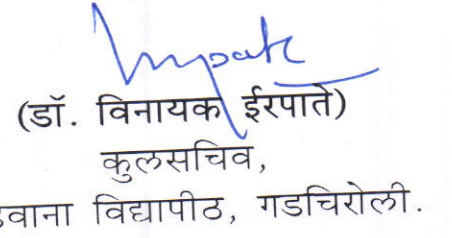 (डॉ. विनायक ईरपाते)
कुलसचिव,
विद्यापीठ, गडचिरोली.